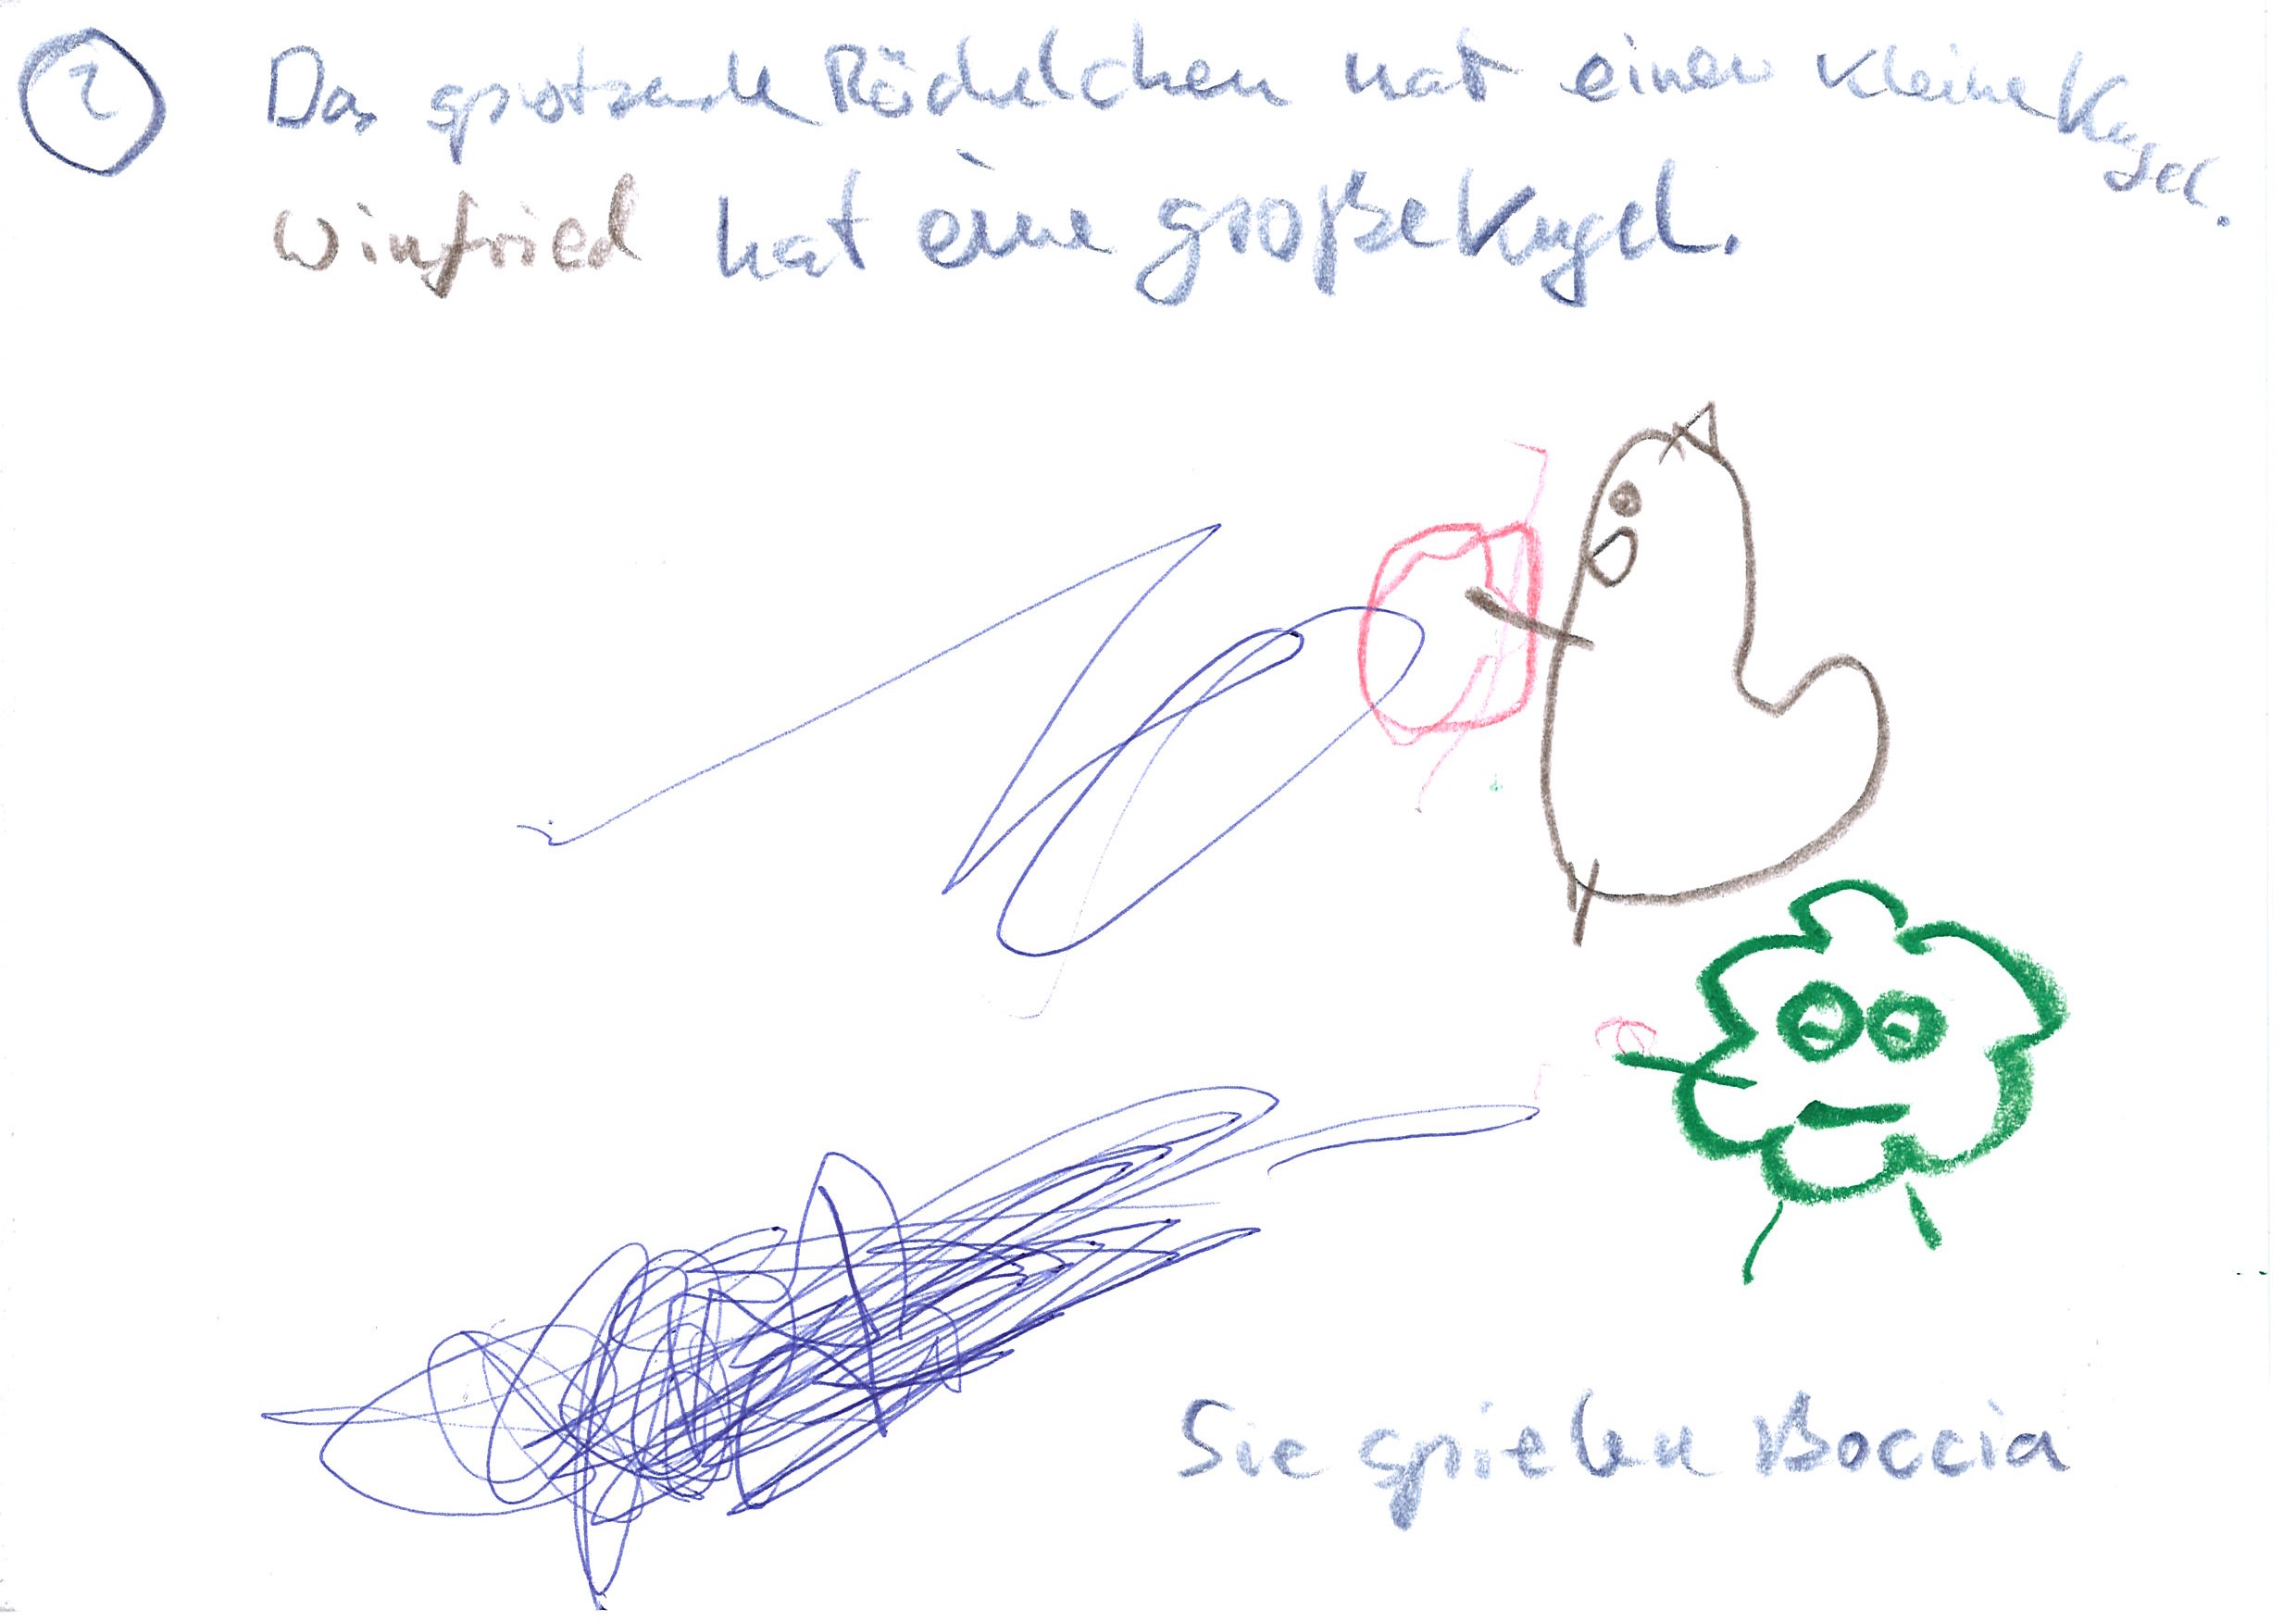 2
Das grotzende Rächelchen hat einer kleine Kugel.
Winfried hat eine große Kugel.
Sie spielen Boccia